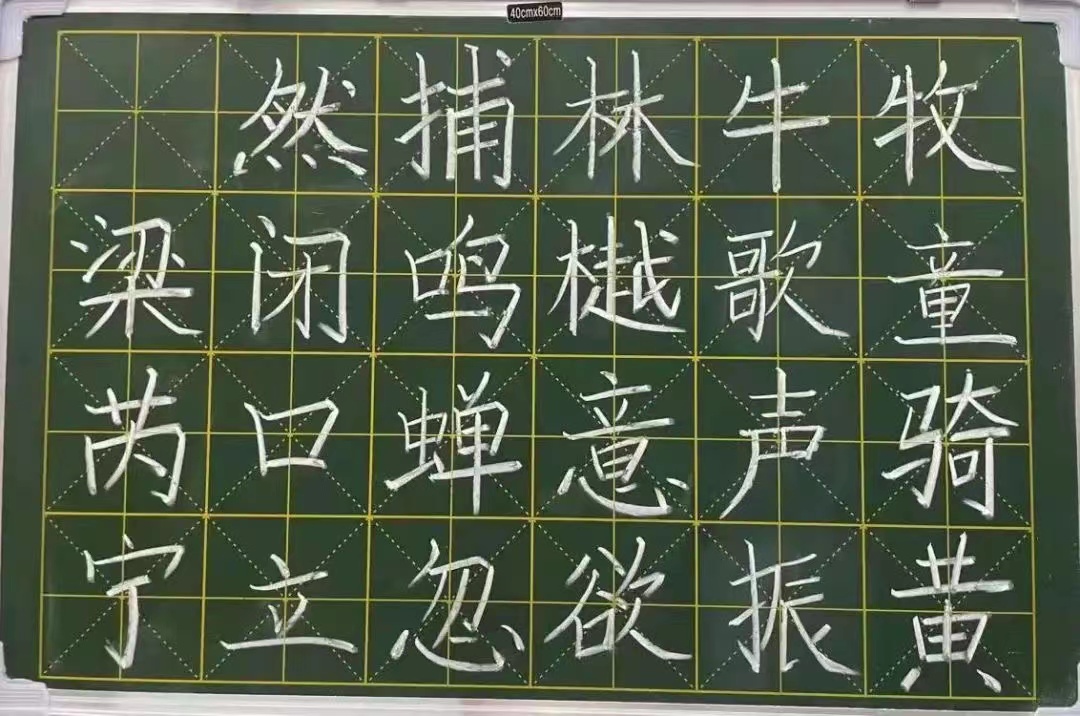 40cmx60cm
牧童骑黄
牛歌声振
林樾意欲
捕鸣蝉忽
然闭口立
梁芮宁